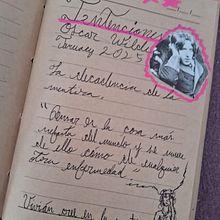 Intenciones
Oscar Wilde
January 2025
La decadencia de la
mentira.
"Pensar es la cosa más
del mundo y se muere
de ello como de cualquier
otra enfermedad"
Vivian